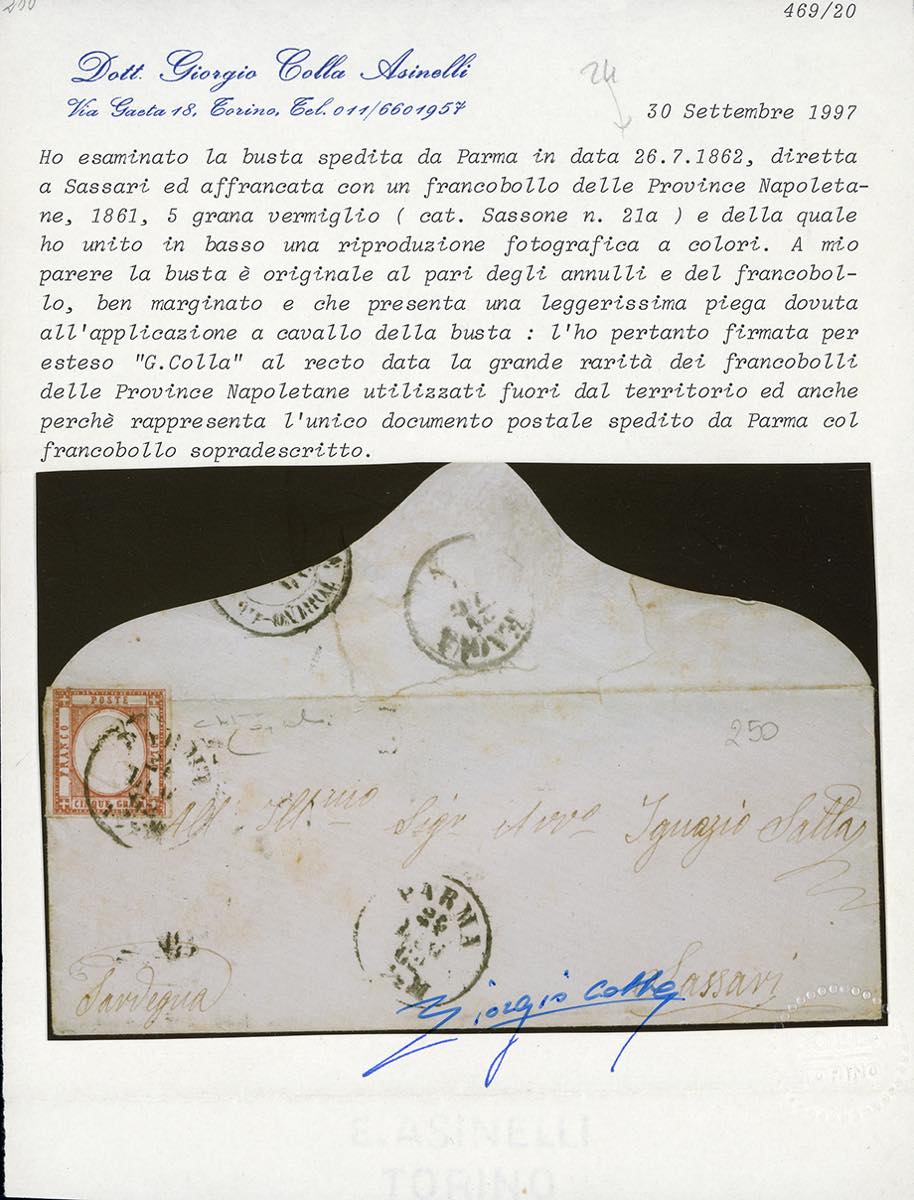 250
469/20
Dott. Giorgio Colla Asinelli
Via Gaeta 18, Torino, Tel. 011/6601957
24
30 Settembre 1997
Ho esaminato la busta spedita da Parma in data 26.7.1862, diretta
a Sassari ed affrancata con un francobollo delle Province Napoleta-
ne, 1861, 5 grana vermiglio ( cat. Sassone n. 21a ) e della quale
ho unito in basso una riproduzione fotografica a colori. A mio
parere la busta è originale al pari degli annulli e del francobol-
lo, ben marginato e che presenta una leggerissima piega dovuta
all'applicazione a cavallo della busta : l'ho pertanto firmata per
esteso "G.Colla" al recto data la grande rarità dei francobolli
delle Province Napoletane utilizzati fuori dal territorio ed anche
perchè rappresenta l'unico documento postale spedito da Parma col
francobollo sopradescritto.
POSTE
FRANCO
CINQUE GRA
250
All' Ill.mo Sigr Avvo Ignazio
PARMA
Sassari
Sardegna
Giorgio Colla
E. ASINELLI
TORINO